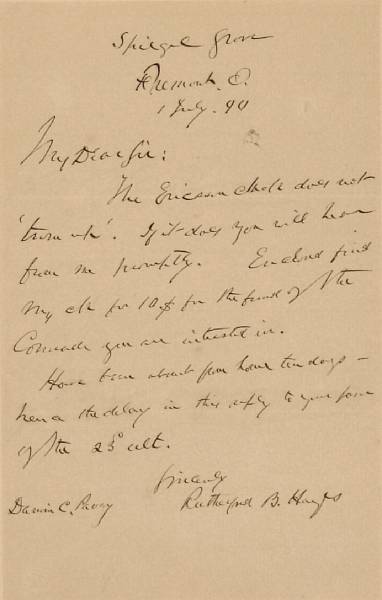 Spiegel Grove
Fremont, O.
1 July. 90
My Dear Sir:
The Ericsson check does not
'turn up'. If it does you will hear
from me promptly. Enclosed find
my ck for 10$ for the fund of the
Comrade you are interested in.
Have been absent from home ten days —
hence the delay in this reply to your favor
of the 23d ult.
Sincerely
Rutherford B. Hayes
Darwin C. Pavey